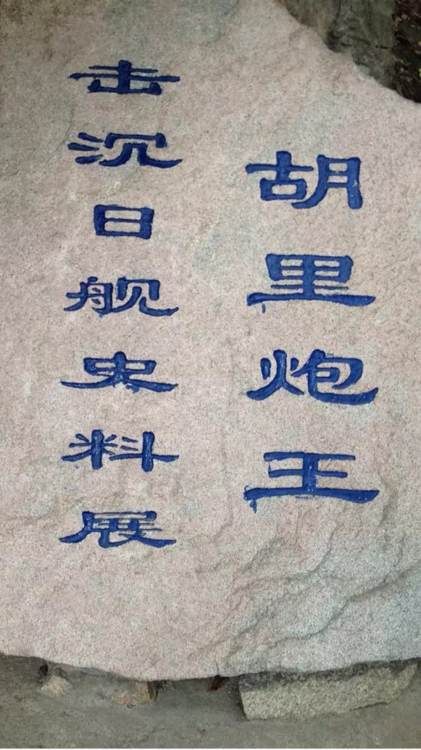 胡里炮王
击沉日舰史料展